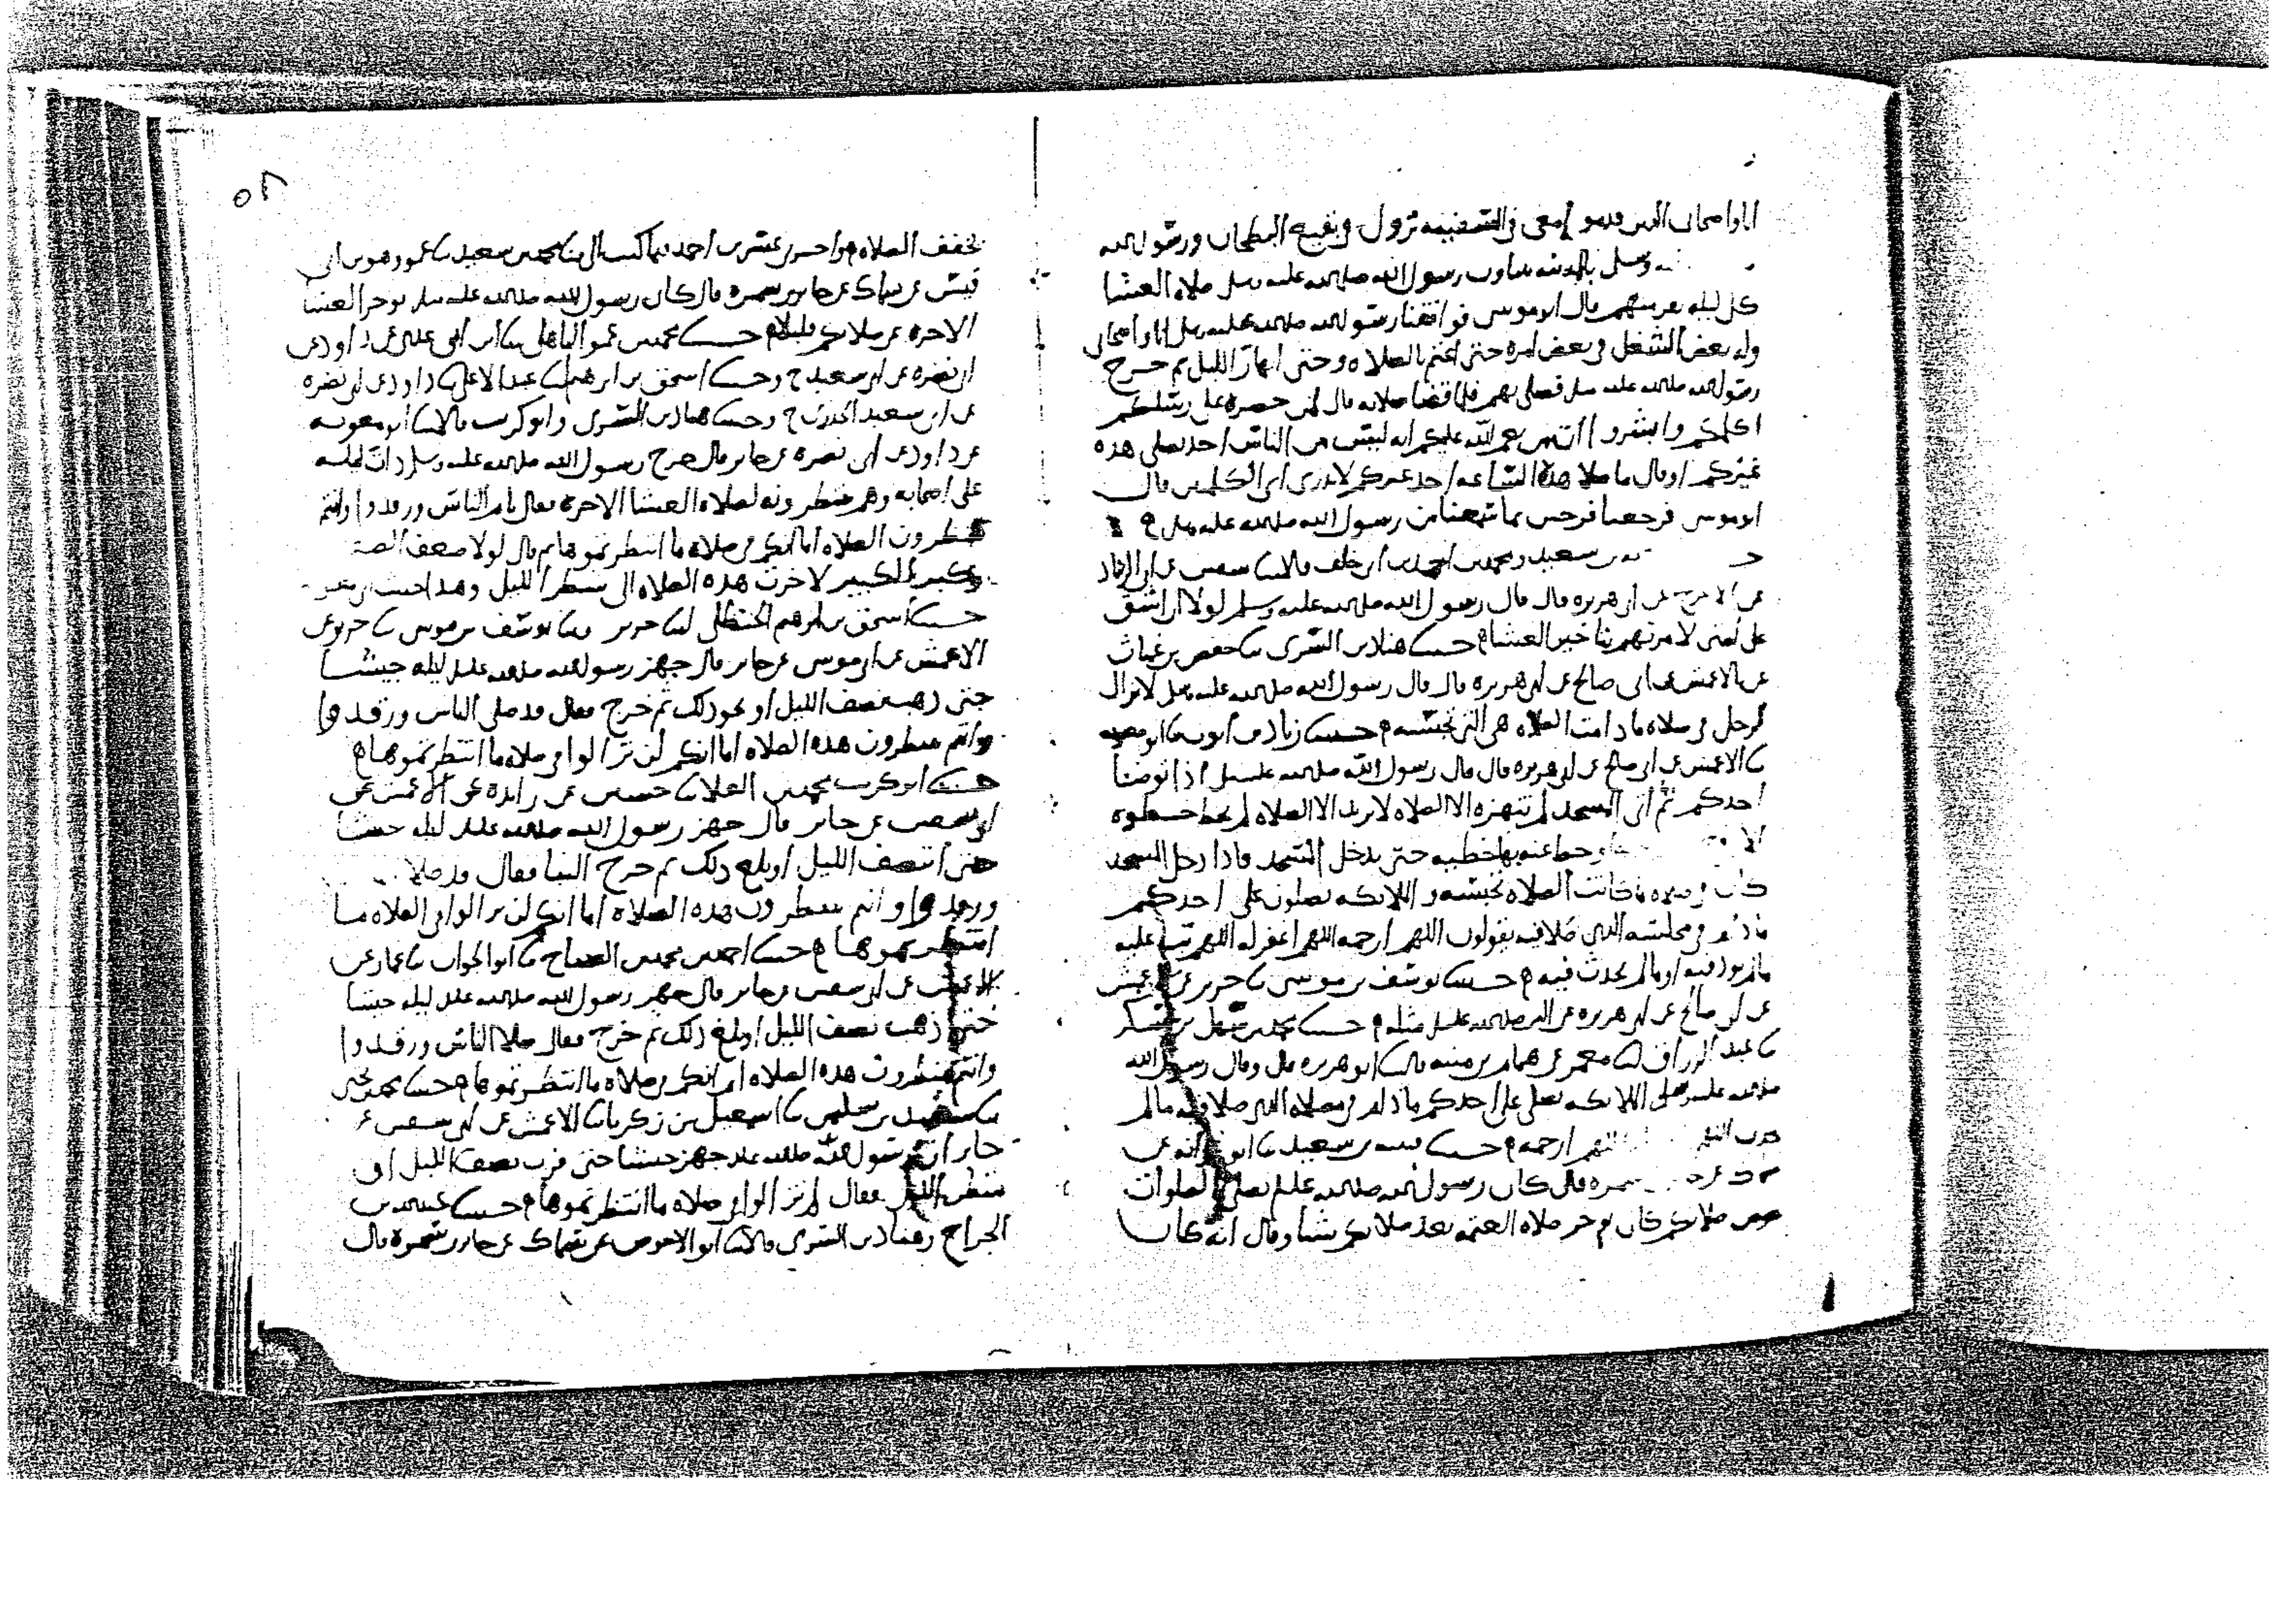 انا واصحابي الذين قدموا معي في السفينة نزول في بقيع البطحان ورسول الله
وسلم بالمدينة يتناوب رسول الله صلى الله عليه وسلم صلاة العشا
كل ليلة نفر منهم قال ابو موسى فوافقنا رسول الله صلى الله عليه وسلم انا واصحابي
وله بعض الشغل في بعض امره حتى اعتم بالصلاة وحتى ابهار الليل ثم خرج
رسول الله صلى الله عليه وسلم فصلى بهم فلما قضا صلاته قال لمن حضره على رسلكم
وابشروا ان من نعم الله عليكم انه ليس من الناس احد يصلي هذه
غيركم او قال ما صلا هذه الساعة احد غيركم لا ندري اي الكلمتين قال
ابو موسى فرجعنا فرحين بما سمعنا من رسول الله صلى الله عليه وسلم
بن سعيد ومحمد بن احمد بن ابي خلف قالا سفين عن ابي الزناد
عن الاعرج عن ابي هريرة قال قال رسول الله صلى الله عليه وسلم لولا ان اشق
على امتي لامرتهم بتاخير العشا حدثنا هناد بن السري نا حفص بن غياث
عن الاعمش عن ابي صالح عن ابي هريرة قال قال رسول الله صلى الله عليه وسلم لا يزال
الرجل في صلاة ما دامت الصلاة هي التي تحبسه حدثنا زياد بن ايوب نا ابو معوية
نا الاعمش عن ابي صالح عن ابي هريرة قال قال رسول الله صلى الله عليه وسلم اذا توضا
احدكم ثم اتى المسجد لم تنهزه الا الصلاة لا يريد الا الصلاة لم يخط خطوة
الا وحط عنه بها خطية حتى يدخل المسجد فاذا دخل المسجد
كان في صلاة ما كانت الصلاة تحبسه والملائكة يصلون على احدكم
ما دام في مجلسه الذي صلا فيه يقولون اللهم ارحمه اللهم اغفر له اللهم تب عليه
ما لم يوذ فيه او ما لم يحدث فيه حدثنا يوسف بن موسى نا جرير عن الاعمش
عن ابي صالح عن ابي هريرة عن النبي صلى الله عليه وسلم مثله حدثنا محمد بن سهل بن عسكر
نا عبد الرزاق انا معمر عن همام بن منبه قال نا ابو هريرة قال وقال رسول الله
صلى الله عليه وسلم الملائكة تصلي على احدكم ما دام في مصلاه الذي صلا فيه ما لم
ارحمه حدثنا قتيبة بن سعيد نا ابو عوانة عن
سمرة قال كان رسول الله صلى الله عليه وسلم يصلي الصلوات
نحو صلاتكم كان يوخر صلاة العتمة بعد صلاتكم شيا وقال انه كان
٥٢
يخفف الصلاة واخبرني عشرين احمد فيما كتب الي نا محمد بن سعيد نا عمرو هو بن ابي
قيس عن سماك عن جابر بن سمرة قال كان رسول الله صلى الله عليه وسلم يوخر العشا
الاخرة عن صلاتكم قليلا حدثنا محمد بن عمرو الباهلي نا ابن ابي عدي عن داود عن
ابي نضرة عن ابي سعيد ح وحدثنا اسحق بن ابرهيم نا عبد الاعلى نا داود عن ابي نضرة
عن ابي سعيد الخدري ح وحدثنا هناد بن السري وابو كريب قالا نا ابو معوية
عن داود عن ابي نضرة عن جابر قال خرج رسول الله صلى الله عليه وسلم ذات ليلة
على اصحابه وهم ينتظرونه لصلاة العشا الاخرة فقال نام الناس ورقدوا وانتم
تنتظرون الصلاة اما انكم في صلاة ما انتظرتموها ثم قال لولا ضعف الضعيف
وكبر الكبير لاخرت هذه الصلاة الى شطر الليل وهذا حديث ابي
حدثنا اسحق بن ابرهيم الحنظلي انا جرير ونا يوسف بن موسى نا جرير عن
الاعمش عن ابي موسى عن جابر قال جهز رسول الله صلى الله عليه وسلم ليلة جيشا
حتى ذهب نصف الليل او نحو ذلك ثم خرج فقال قد صلى الناس ورقدوا
وانتم تنتظرون هذه الصلاة اما انكم لن تزالوا في صلاة ما انتظرتموها
حدثنا ابو كريب محمد بن العلا نا حسين عن زايدة عن الاعمش عن
ابي سفين عن جابر قال جهز رسول الله صلى الله عليه وسلم ليلة جيشا
حتى انتصف الليل او بلغ ذلك ثم خرج الينا فقال قد صلا
ورقدوا وانتم تنتظرون هذه الصلاة اما انكم لن تزالوا في الصلاة ما
انتظرتموها حدثنا احمد بن محمد بن الصباح نا ابو الجواب نا عمار عن
الاعمش عن ابي سفين عن جابر قال جهز رسول الله صلى الله عليه وسلم ليلة جيشا
حتى ذهب نصف الليل او بلغ ذلك ثم خرج فقال صلا الناس ورقدوا
وانتم تنتظرون هذه الصلاة اما انكم في صلاة ما انتظرتموها حدثنا محمد بن يحيى
نا سعيد بن سليمن نا اسمعيل بن زكريا نا الاعمش عن ابي سفين عن
جابر ان رسول الله صلى الله عليه وسلم جهز جيشا حتى قرب نصف الليل او
شطر الليل فقال لم تزالوا في صلاة ما انتظرتموها حدثنا عبد الله بن
الجراح وهناد بن السري قالا نا ابو الاحوص عن سماك عن جابر بن سمرة قال